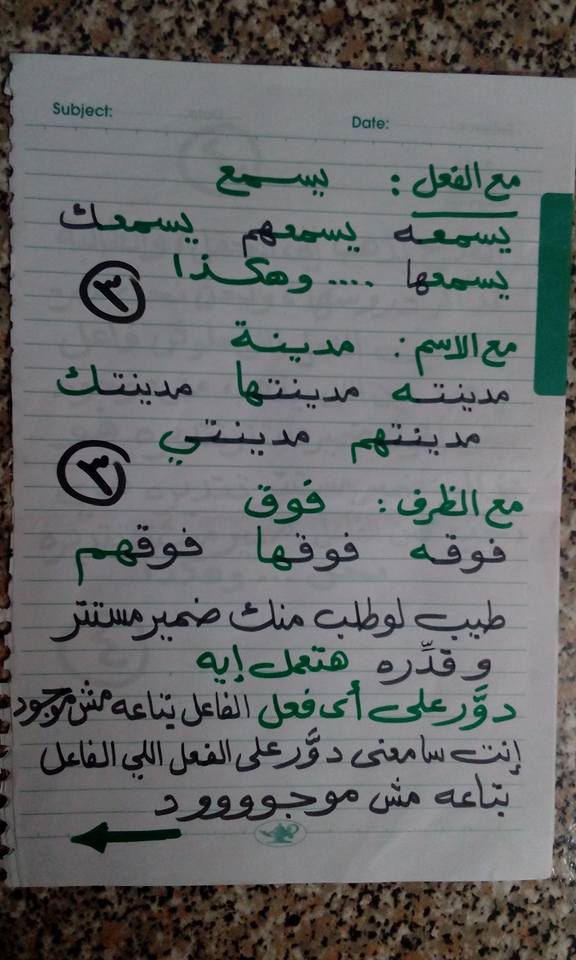 Subject:
Date:
مع الفعل : يسمع
يسمعه يسمعهم يسمعك
يسمعها .... وهكذا
٣
مع الاسم : مدينة
مدينته مدينتها مدينتك
مدينتهم مدينتي
٣
مع الظرف : فوق
فوقه فوقها فوقهم
طيب لو طلب منك ضمير مستتر
و قدِّره هتعمل إيه
دوَّر على أى فعل الفاعل بتاعه مش موجود
إنت سامعنى دوَّر على الفعل اللي الفاعل
بتاعه مش موجوووود